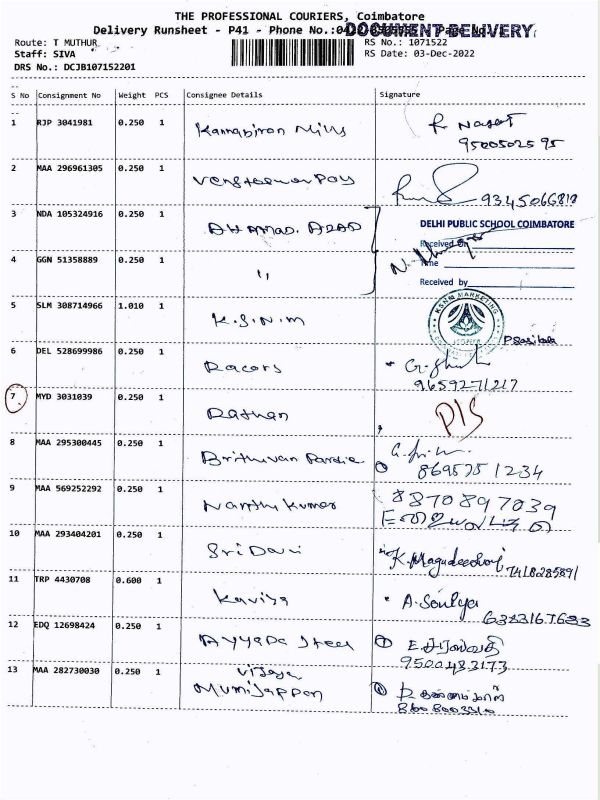 THE PROFESSIONAL COURIERS, Coimbatore
Delivery Runsheet - P41 - Phone No.: DOCUMENT DELIVERY
Route: T MUTHUR RS No.: 1071522
Staff: SIVA RS Date: 03-Dec-2022
DRS No.: DCJB107152201
S No Consignment No Weight PCS Consignee Details Signature
1 RJP 3041981 0.250 1 Kannapiran Mills
2 MAA 296961305 0.250 1
3 NDA 105324916 0.250 1 AHAMAD. AZAD
DELHI PUBLIC SCHOOL COIMBATORE
Received On
4 GGN 51358889 0.250 1 "
Time
Received by
5 SLM 308714966 1.010 1 K.S.N.M
KSNM MARKETING
6 DEL 528699986 0.250 1 Racors
9659271217
7 MYD 3031039 0.250 1 Rathan
8 MAA 295300445 0.250 1
8695751234
9 MAA 569252292 0.250 1 Nanthi Kumar 8870897039
10 MAA 293404201 0.250 1 Sri Devi
7418285891
11 TRP 4430708 0.600 1 Kaviya A. Soniya
12 EDQ 12698424 0.250 1 Ayyapa Steel
9500483173
13 MAA 282730030 0.250 1 Vijaya
Muniyappan